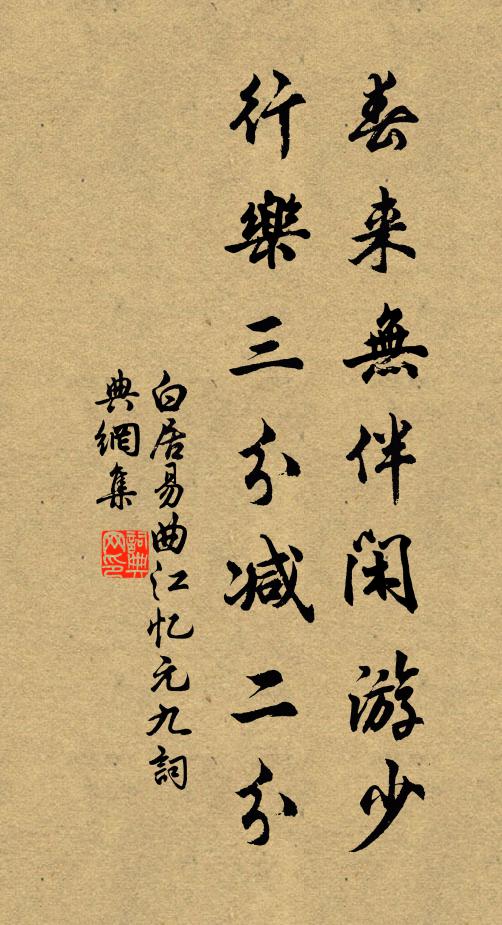 春来無伴閑游少
行樂三分減二分
白居易曲江忆元九詞
典網集
詞典
网印